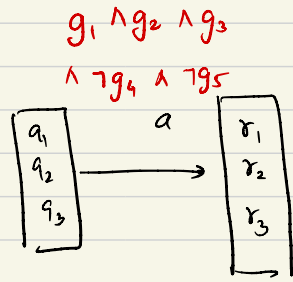 g₁ ∧ g₂ ∧ g₃
∧ ¬g₄ ∧ ¬g₅
a
q₁
q₂
q₃
r₁
r₂
r₃